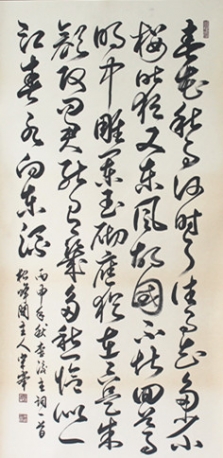 春花秋月何時了往事知多少小
樓昨夜又東風故國不堪回首月
明中雕闌玉砌應猶在只是朱
顏改問君能有幾多愁恰似一
江春水向東流
丙申年秋李後主詞一首
閣主人